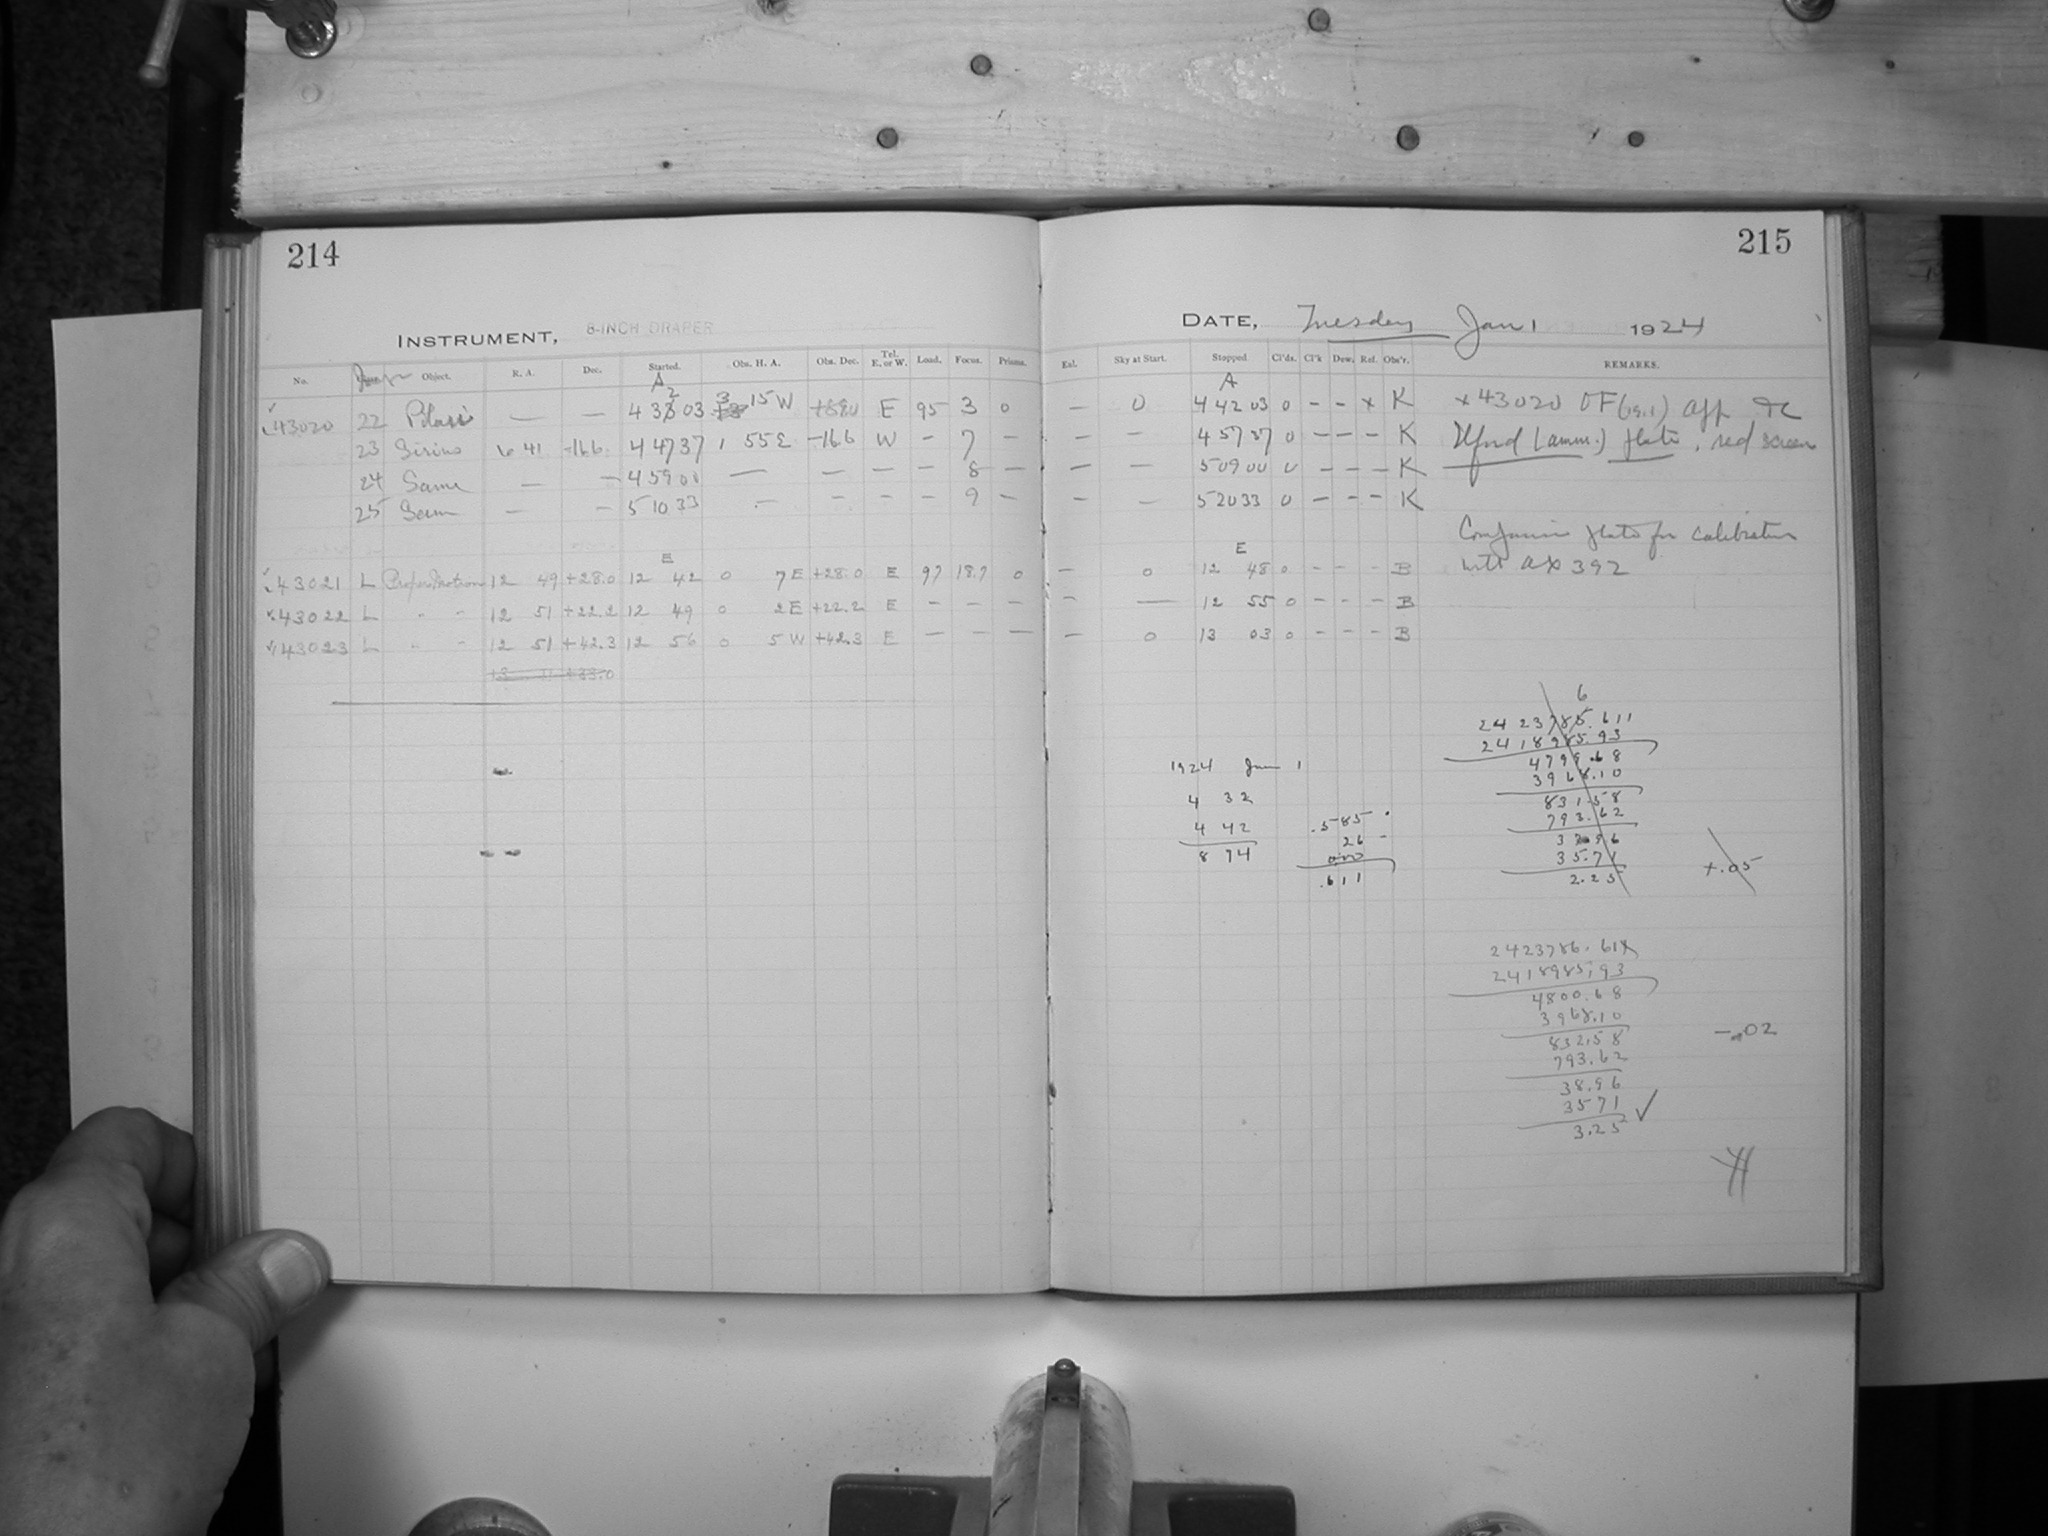 214
INSTRUMENT, 8-INCH DRAPER
No. Object. R. A. Dec. Started. Obs. H. A. Obs. Dec. Tel. E. or W. Load. Focus. Prisms.
A
43020 22 Polaris — — 4 32 03 3 15 W +88.0 E 95 3 0
23 Sirius 6 41 -16.6 4 47 37 1 55 E -16.6 W - 7 -
24 Same — — 4 59 00 — — — — 8 —
25 Same — — 5 10 33 — — — — 9 —
E
43021 L Proper Motion 12 49 +28.0 12 42 0 7 E +28.0 E 97 18.7 0
43022 L " " 12 51 +22.2 12 49 0 2 E +22.2 E — — —
43023 L " " 12 51 +42.3 12 56 0 5 W +42.3 E — — —
215
DATE, Tuesday Jan 1 1924
Exl. Sky at Start. Stopped. Cl'ds. Cl'k Dew. Ref. Obs'r. REMARKS.
A
— 0 4 42 03 0 - - x K x 43020 OF (19.1)
— — 4 57 37 0 - - - K Ilford (amm.) plate, red screen
— — 5 09 00 0 - - - K
— — 5 20 33 0 - - - K
Comparison plate for calibration
with ax 392
E
— 0 12 48 0 - - - B
- — 12 55 0 - - - B
— 0 13 03 0 - - - B
6
2423785.611
2418985.93
4799.68
3968.10
831.58
793.62
37.96
35.71
2.25
+.05
1924 Jan 1
4 32
4 42
8 74
.585
26
.611
2423786.611
2418985.93
4800.68
3968.10
832.58
793.62
38.96
35 71 ✓
3.25
-.02